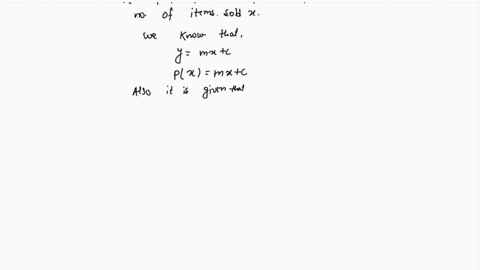 no of items sold x.
we know that,
y = mx+c
P(x) = mx+c
Also it is given that